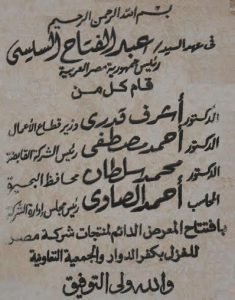 بسم الله الرحمن الرحيم
فى عهد السيد / عبد الفتاح السيسى
رئيس جمهورية مصر العربية
قام كل من
الدكتور أشرف قدرى وزير قطاع الأعمال
الدكتور أحمد مصطفى رئيس الشركة القابضة
الدكتور محمد سلطان محافظ البحيرة
المحاسب أحمد الصاوى رئيس مجلس إدارة الشركة
بافتتاح المعرض الدائم لمنتجات شركة مصر
للغزل بكفر الدوار والجمعية التعاونية
والله ولى التوفيق